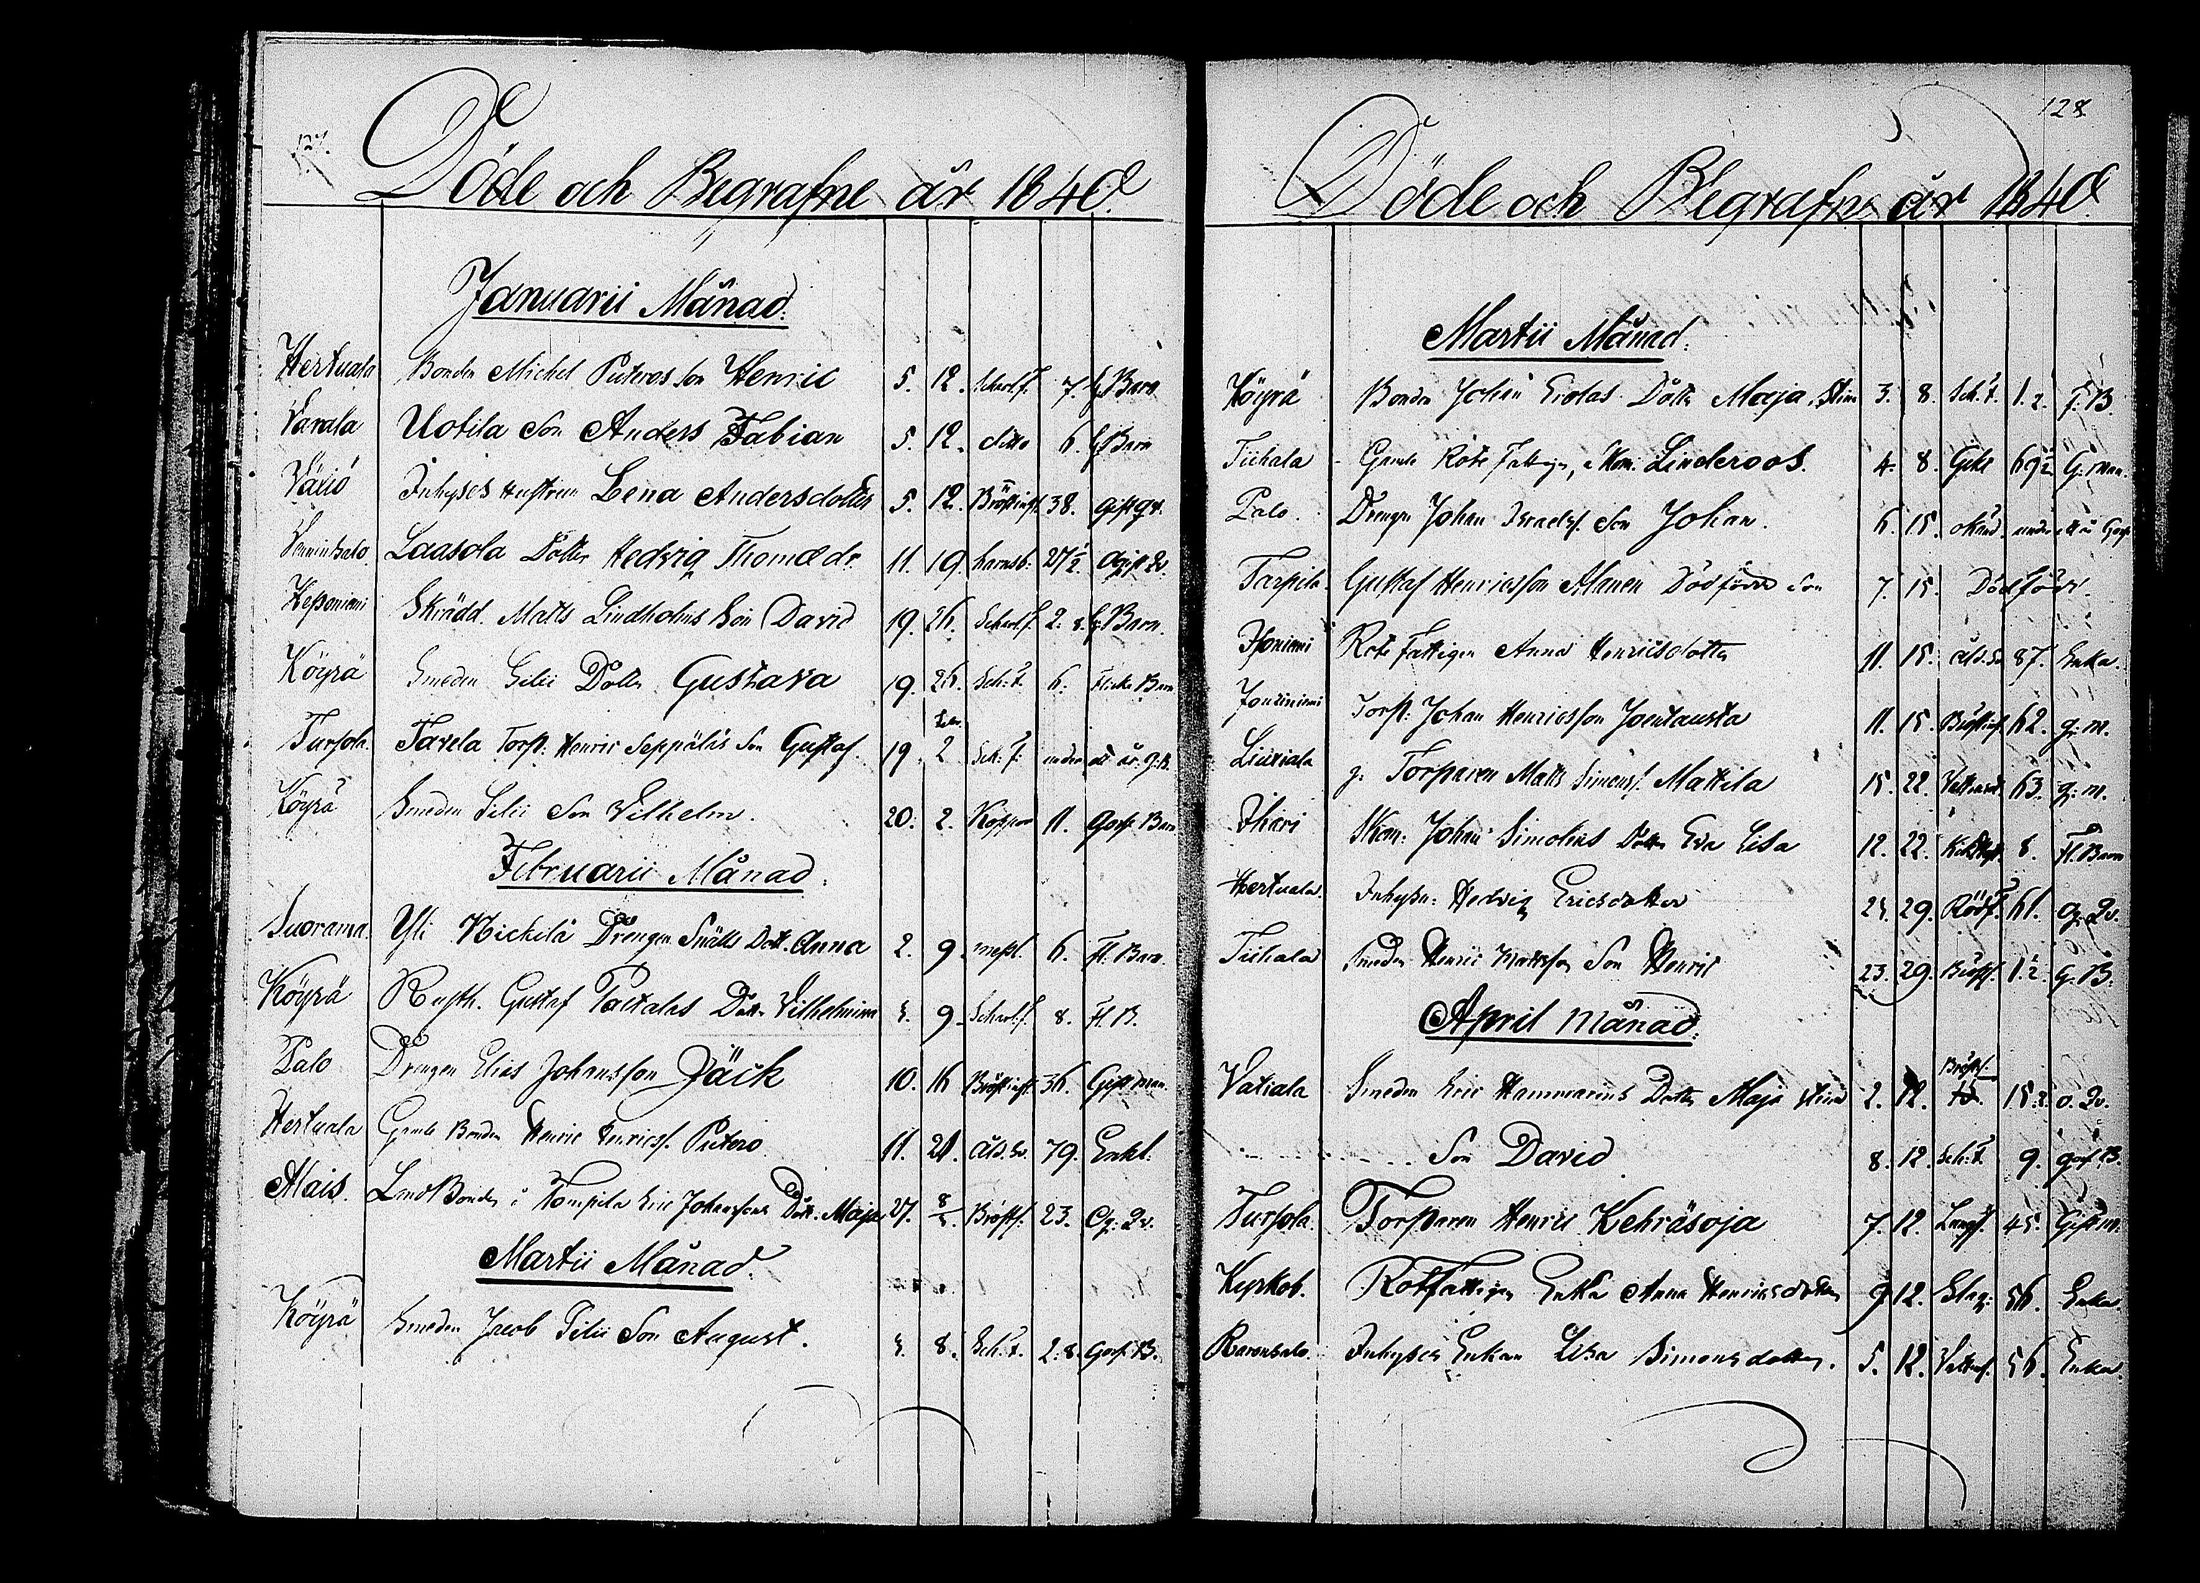 127.
Döde och Begrafne år 1840.
Januarii Månad.
Hertuala Bonden Michel Puteros Son Henric 5. 12. Scharl.f. 7. g. Barn
Varala Uotila Son Anders Fabian 5. 12. ditto 6. g. Barn
Växiö Inhyses Hustrun Lena Andersdotter 5. 12. Bröstinfl. 38. Gift qv.
Laasola Dotter Hedvig Thomædr. 11. 19. barnsb. 27 1/2. Ogift Qv.
Heponiemi Skrädd. Matts Lindholms Son David 19. 26. Scharl.f. 2. 8. g. Barn.
Köyrä Smeden Silii Dotter Gustava 19. 26. Sch: f. 6. Flicke Barn
Tursola. Tavela Torp. Henric Seppäläs Son Gustaf. 19. 2 Sch: f. under ett år. g. B.
Köyrä Smeden Silii Son Wilhelm. 20. 2. Koppor 11. Gosse Barn
Februarii Månad.
Suorama. Yli Nickilä Drengen Snälls Dott. Anna 2. 9. messl. 6. Fl. Barn.
Köyrä Rusth. Gustaf Paetalas Dott. Vilhelmina 3. 9. Scharl.f. 8. Fl. B.
Palo Drengen Elias Johansson Jäck 10. 16 Bröstinfl. 36. Gift man.
Hertuala Gamle Bonden Henric Henricss. Putero 11. 21. Åld. sv. 79. Enkl.
Alais. LandBonden i Kompila Eric Johanssons Dott. Maja 27. 8/3. Bröstf. 23. Og: Qv.
Martii Månad.
Köyrä Smeden Jacob Silii Son August. 3. 8. Sch: f. 2. 8. Goss. B.
128
Döde och Begrafne år 1840.
Martii Månad.
Köyrä Bonden Johan Erolas Dotter Maja Stina 3. 8. Sch: f. 1 1/2. f. B.
Tiihala Gamle Rote Fattigen, Skom. Linderoos. 4. 8. Gikt 69 1/2 G. man.
Palo. Drengen Johan Israelss. Son Johan. 6. 15. okänd. under ett år Goss
Tarpila. Gustaf Henricsson Alanen Dödfödde Son 7. 15. Dödfödd.
Rote Fattigen Anna Henricsdotter 11. 15. åld. sv. 87. Enka.
Torp: Johan Henricsson Joentausta 11. 15. Bröstinf. 62. g: m.
Liuxiala g. Torparen Matts Simonss. Mattila 15. 22. Vattusot 63. g: m.
Ihari Skom: Johan Simolins Dotter Eva Lisa 12. 22. Kikhosta 8. Fl. Barn
Hertuala. Inhyses: Hedvig Ericsdotter 24. 29. Rödf. 61. Og. Qv.
Tiihala Smeden Henric Mattsson Son Henric 23. 29. Bröstf. 1 1/2. G: B.
April Månad.
Vatiala Smeden Eric Hammarins Dotter Maja Stina 2. 12. Bröstf. 15. 2. o. Qv.
Son David 8. 12. Sch: f. 9. Goss. B.
Tursola. Torparen Henric Kehräsoja 7. 12. Lungs. 45. Gift m.
Kyrkob. RotFattigen Enka Anna Henricsdotter 9. 12. Slag: 56. Enka
Inhyses Enkan Lisa Simonsdotter. 5. 12. Vattus. 56. Enka.